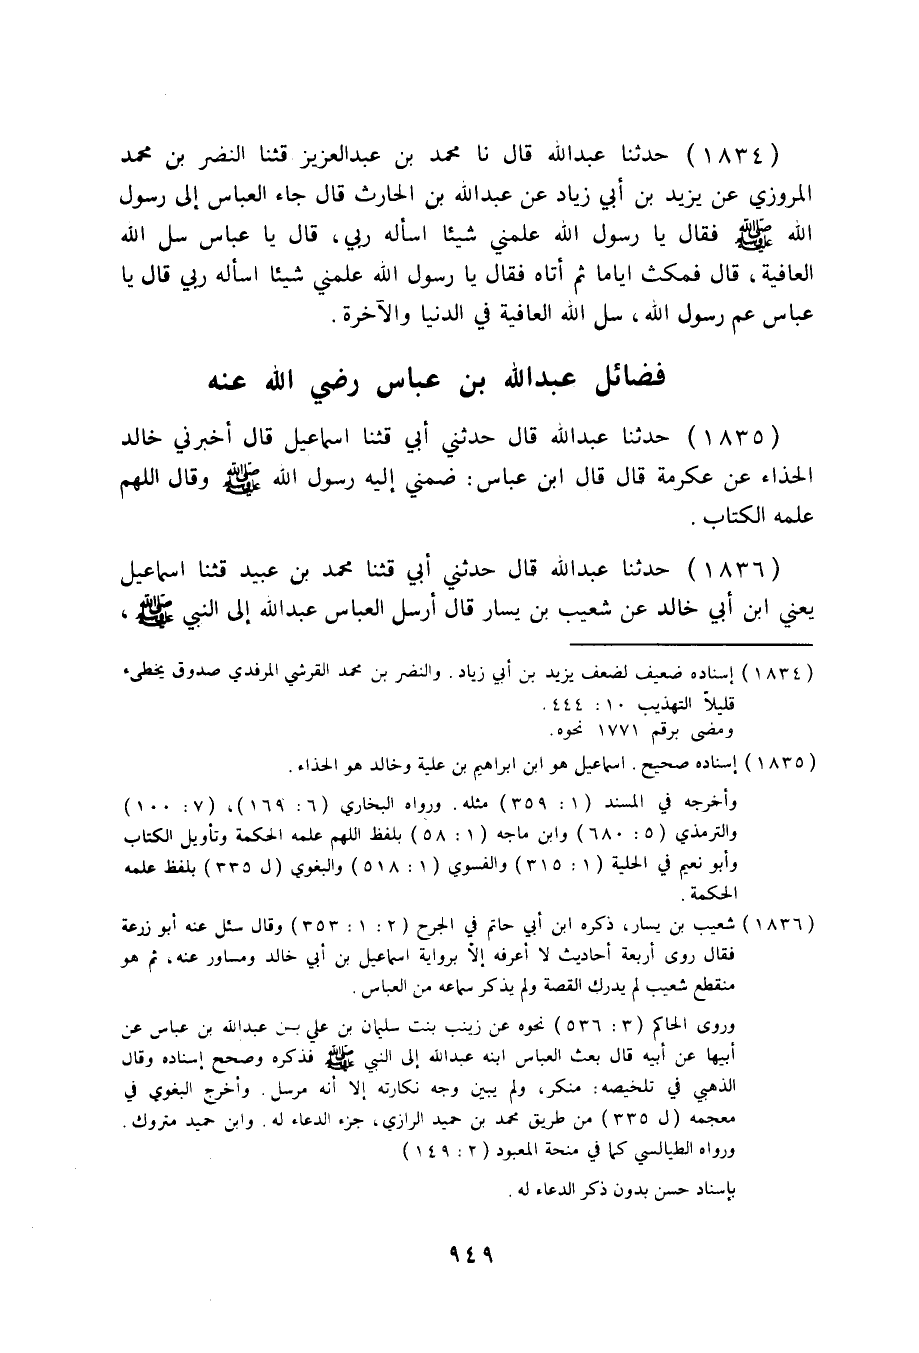 (١٨٣٤) حدثنا عبدالله قال نا محمد بن عبدالعزيز قثنا النضر بن محمد
المروزي عن يزيد بن أبي زياد عن عبدالله بن الحارث قال جاء العباس إلى رسول
الله ﷺ فقال يا رسول الله علمني شيئا اسأله ربي، قال يا عباس سل الله
العافية، قال فمكث اياما ثم أتاه فقال يا رسول الله علمني شيئا اسأله ربي قال يا
عباس عم رسول الله، سل الله العافية في الدنيا والآخرة.
فضائل عبدالله بن عباس رضي الله عنه
(١٨٣٥) حدثنا عبدالله قال حدثني أبي قثنا اسماعيل قال أخبرني خالد
الحذاء عن عكرمة قال قال ابن عباس: ضمني إليه رسول الله ﷺ وقال اللهم
علمه الكتاب.
(١٨٣٦) حدثنا عبدالله قال حدثني أبي قثنا محمد بن عبيد قثنا اسماعيل
يعني ابن أبي خالد عن شعيب بن يسار قال أرسل العباس عبدالله إلى النبي ﷺ،
(١٨٣٤) إسناده ضعيف لضعف يزيد بن أبي زياد. والنضر بن محمد القرشي المرفدي صدوق يخطىء
قليلاً التهذيب ١٠: ٤٤٤.
ومضى برقم ١٧٧١ نحوه.
(١٨٣٥) إسناده صحيح. اسماعيل هو ابن ابراهيم بن علية وخالد هو الحذاء.
وأخرجه في المسند (١: ٣٥٩) مثله. ورواه البخاري (٦: ١٦٩)، (٧: ١٠٠)
والترمذي (٥: ٦٨٠) وابن ماجه (١: ٥٨) بلفظ اللهم علمه الحكمة وتأويل الكتاب
وأبو نعيم في الحلية (١: ٣١٥) والفسوي (١: ٥١٨) والبغوي (ل ٣٣٥) بلفظ علمه
الحكمة.
(١٨٣٦) شعيب بن يسار، ذكره ابن أبي حاتم في الجرح (٢: ١: ٣٥٣) وقال سئل عنه أبو زرعة
فقال روى أربعة أحاديث لا أعرفه إلاّ برواية اسماعيل بن أبي خالد ومساور عنه، ثم هو
منقطع شعيب لم يدرك القصة ولم يذكر سماعه من العباس.
وروى الحاكم (٣: ٥٣٦) نحوه عن زينب بنت سليمان بن علي بن عبدالله بن عباس عن
أبيها عن أبيه قال بعث العباس ابنه عبدالله إلى النبي ﷺ فذكره وصحح إسناده وقال
الذهبي في تلخيصه: منكر، ولم يبين وجه نكارته إلا أنه مرسل. وأخرج البغوي في
معجمه (ل ٣٣٥) من طريق محمد بن حميد الرازي، جزء الدعاء له. وابن حميد متروك.
ورواه الطيالسي كما في منحة المعبود (٢: ١٤٩)
بإسناد حسن بدون ذكر الدعاء له.
٩٤٩